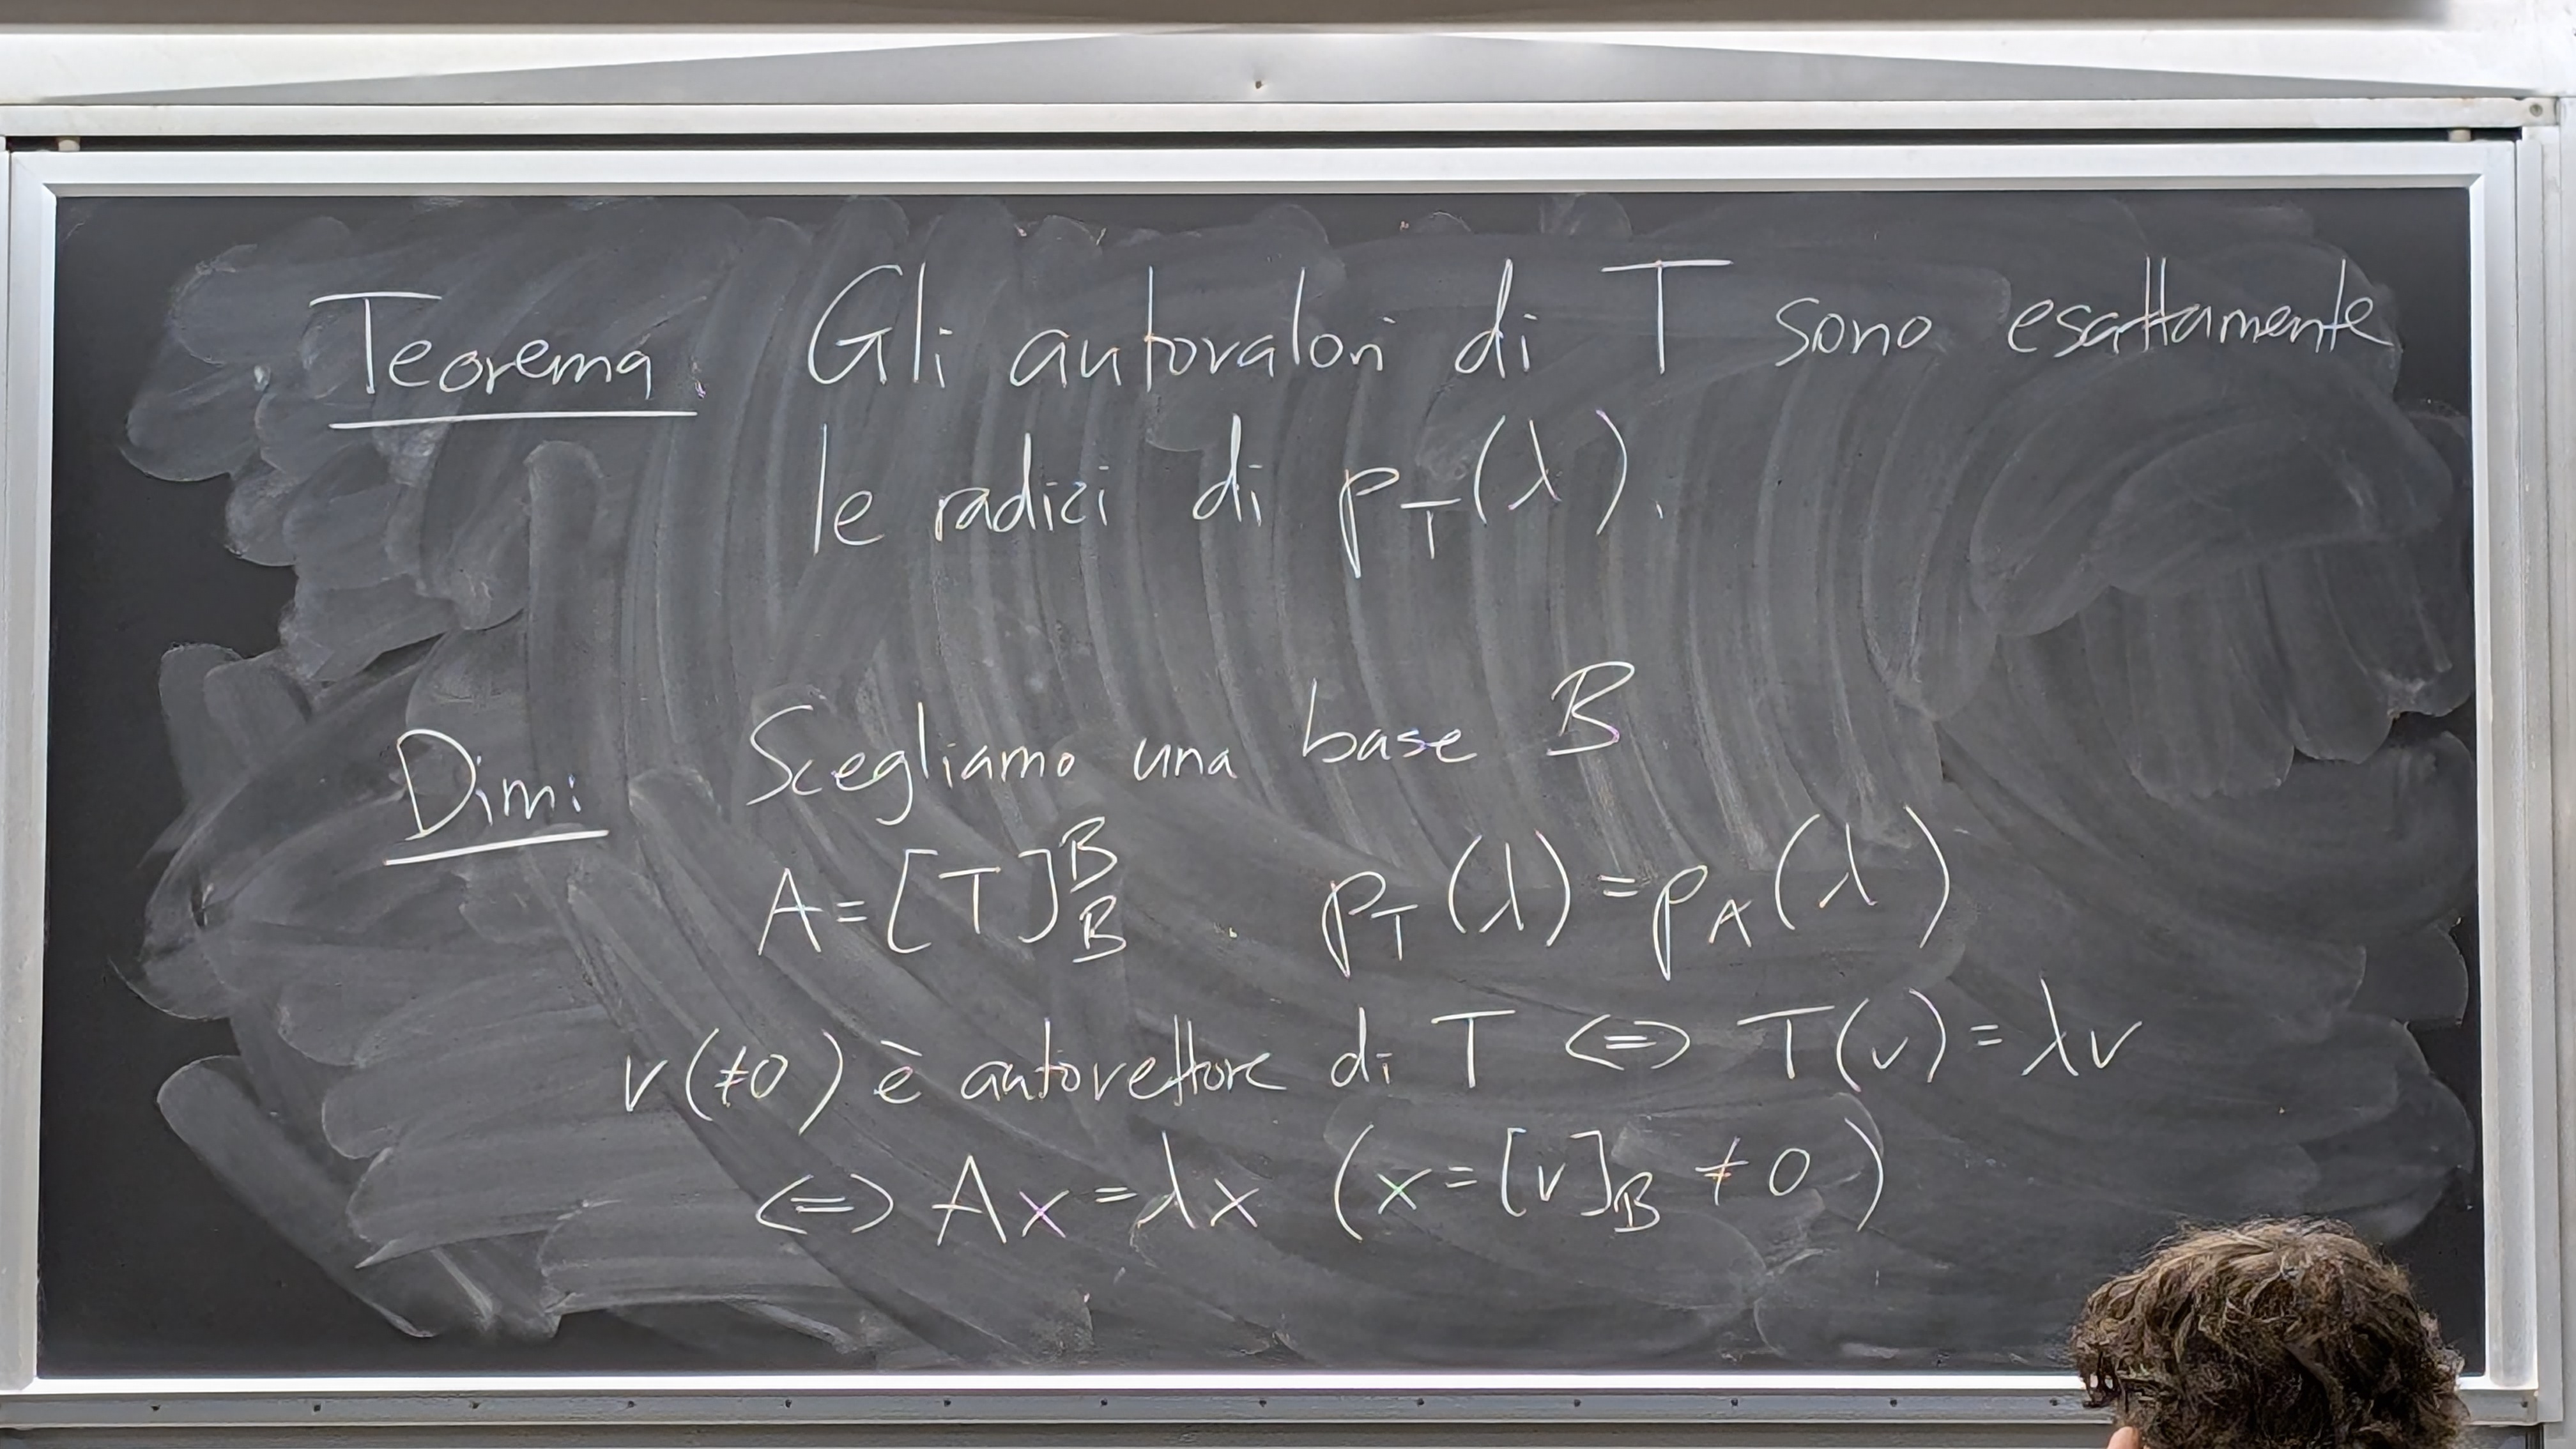 Teorema. Gli autovalori di T sono esattamente
le radici di p_T(λ).
Dim: Scegliamo una base B
A=[T]_B^B . p_T(λ)=p_A(λ)
v(≠0) è autovettore di T <=> T(v)=λv
<=> Ax=λx (x=[v]_B ≠0)